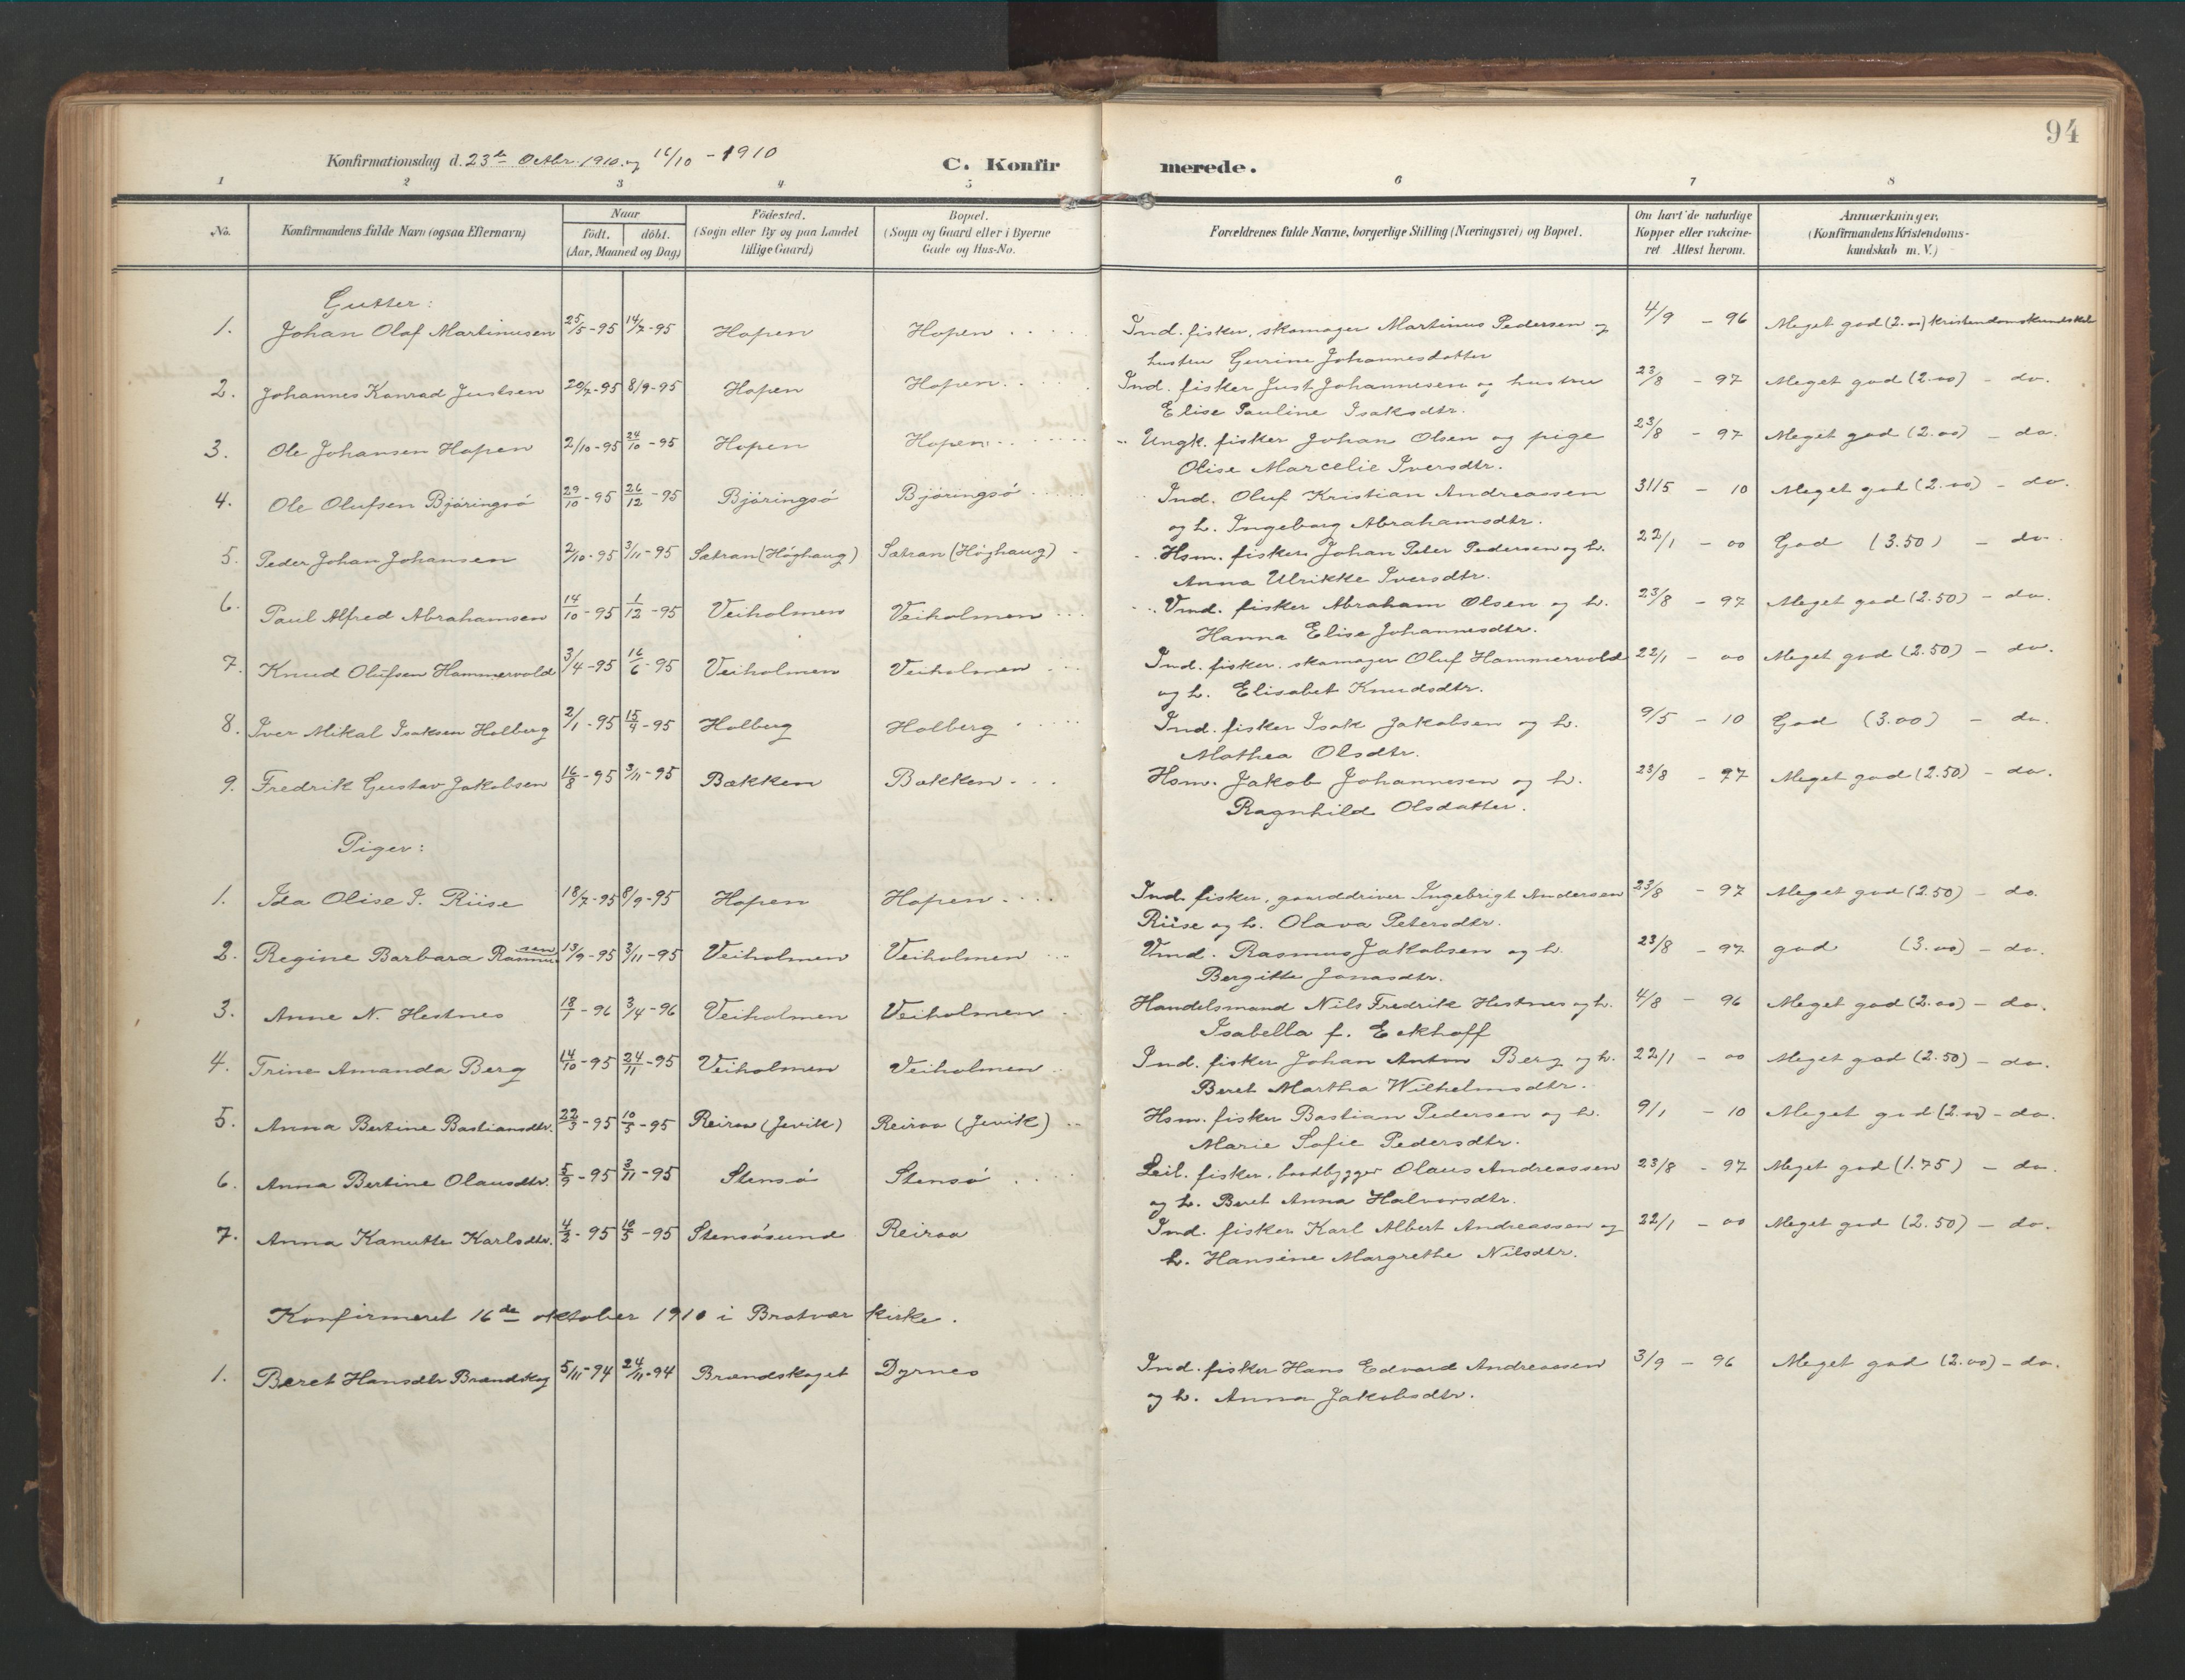 94
Konfirmationsdag d. 23de Octbr. 1910. og 16/10 - 1910
C. Konfirmerede.
1 2 3 4 5 6 7 8
No. Konfirmandens fulde Navn (ogsaa Efternavn) Naar födt. döbt. (Aar, Maaned og Dag) Födested. (Sogn eller By og paa Landet tillige Gaard) Bopæl. (Sogn og Gaard eller i Byerne Gade og Hus-No. Forældrenes fulde Navne, borgerlige Stilling (Næringsvei) og Bopæl. Om havt de naturlige Kopper eller vakcineret Attest herom. Anmærkninger. (Konfirmandens Kristendomskundskab m. V.)
Gutter:
1. Johan Olaf Martinusen 25/5-95 14/7-95 Hopen Hopen Ind. fisker, skomager Martinus Pedersen og 4/9 - 96 Meget god (2.00) kristendomskundskab
hustru Gurine Johannesdatter
2. Johannes Konrad Justsen 20/7-95 8/9-95 Hopen Hopen Ind. fisker Just Johannesen og hustru 23/8 - 97 Meget god (2.00) - do.
Elise Pauline Isaksdtr.
3. Ole Johansen Hopen 2/10-95 24/10-95 Hopen Hopen Ungk. fisker Johan Olsen og pige 23/8 - 97 Meget god (2.00) - do.
Olise Marcelie Iversdtr.
4. Ole Olufsen Björingsö 29/10-95 26/12-95 Björingsö Björingsö Ind. Oluf Kristian Andreassen 31/5 - 10 Meget god (2.00) - do.
og h. Ingeborg Abrahamsdtr.
5. Peder Johan Johansen 2/10-95 3/11-95 Sætran (Höghaug) Sætran (Höghaug) Hsm. fisker Johan Peter Pedersen og h. 22/1 - 00 God (3.50) - do.
Anna Ulrikke Iversdtr.
6. Paul Alfred Abrahamsen 14/10-95 1/12-95 Veiholmen Veiholmen Ind. fisker Abraham Olsen og h. 23/8 - 97 Meget god (2.50) - do.
Hanna Elise Johannesdtr.
7. Knud Olufsen Hammervold 3/4-95 16/6-95 Veiholmen Veiholmen Ind. fisker. skomager Oluf Hammervold 22/1 - 00 Meget god (2.50) - do.
og h. Elisabet Knudsdtr.
8. Iver Mikal Isaksen Holberg 2/1-95 15/4-95 Holberg Holberg Ind. fisker Isak Jakobsen og h. 9/5 - 10 God (3.00) - do.
Mathea Olsdtr.
9. Fredrik Gustav Jakobsen 16/8-95 3/11-95 Bækken Bækken Hsm. Jakob Johannesen og h. 23/8 - 97 Meget god (2.50) - do.
Ragnhild Olsdatter.
Piger:
1. Ida Olise I. Riise 18/7-95 8/9-95 Hopen Hopen Ind. fisker, gaarddriver Ingebrigt Andersen 23/8 - 97 Meget god (2.50) - do.
Riise og h. Olava Petersdtr.
2. Regine Barbara Rasmussen 13/9-95 3/11-95 Veiholmen Veiholmen Ind. Rasmus Jakobsen og h. 23/8 - 97 god (3.00) - do.
Bergitte Jonasdtr.
3. Anne N. Hestnes 18/1-96 3/4-96 Veiholmen Veiholmen Handelsmand Nils Fredrik Hestnes og h. 4/8 - 96 Meget god (2.00) - do.
Isabella f. Eckhoff
4. Trine Amanda Berg 14/10-95 24/11-95 Veiholmen Veiholmen Ind. fisker Johan Anton Berg og h. 22/1 - 00 Meget god (2.50) - do.
Beret Martha Wilhelmsdtr.
5. Anna Bertine Bastiansdtr. 22/3-95 10/5-95 Reiroa (Jevik) Reiroa (Jevik) Hsm. fisker Bastian Pedersen og h. 9/1 - 10 Meget god (2.00) - do.
Marie Sofie Pedersdtr.
6. Anna Bertine Olausdtr. 5/9-95 3/11-95 Stensö Stensö Leil. fisker, baadbygger Olaus Andreassen 23/8 - 97 Meget god (1.75) - do.
og h. Beret Anna Halvorsdtr.
7. Anna Kanutte Karlsdtr. 4/2-95 10/5-95 Stensösund Reiroa Ind. fisker Karl Albert Andreassen og 22/1 - 00 Meget god (2.50) - do.
h. Hansine Margrethe Nilsdtr.
Konfirmeret 16de oktober 1910 i Bratvær kirke.
1. Beret Hansdtr Brændskog 5/11-94 24/11-94 Brændskoget Dyrnes Ind. fisker Hans Edvard Andreassen 3/9 - 96 Meget god (2.00) - do.
og h. Anna Jakobsdtr.